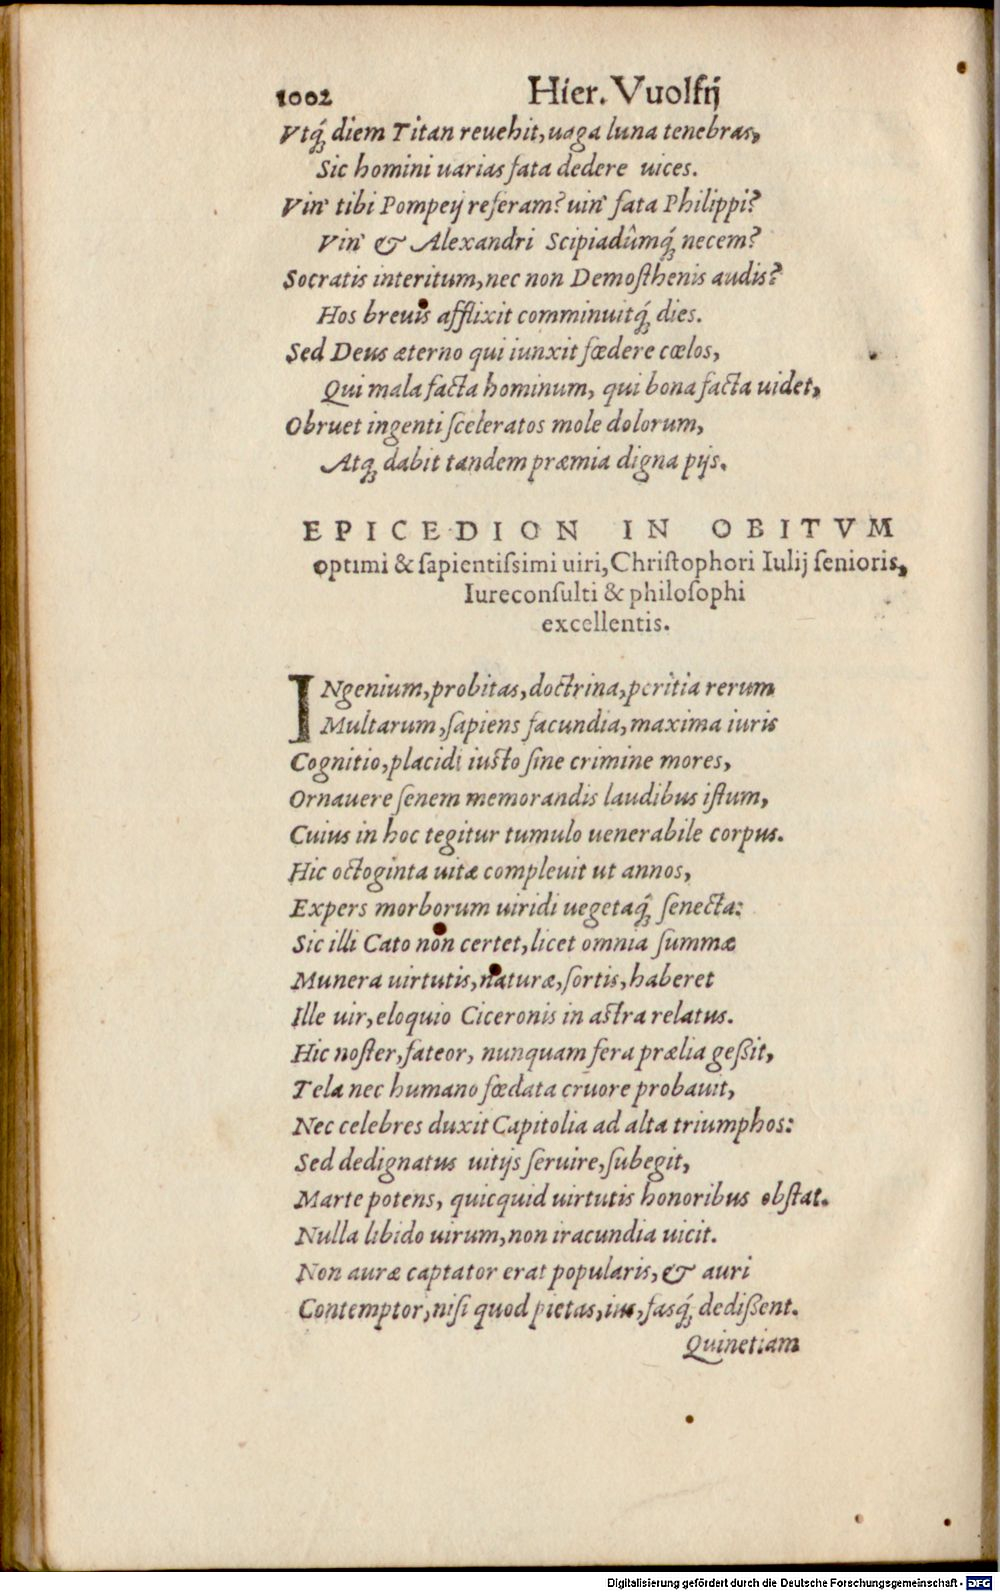 1002 Hier. Vuolfij
Vtq́; diem Titan reuehit, uaga luna tenebras,
Sic homini uarias fata dedere uices.
Vin' tibi Pompeij referam? uin' fata Philippi?
Vin' & Alexandri Scipiadûmq́; necem?
Socratis interitum, nec non Demosthenis audis?
Hos breuis afflixit comminuitq́; dies.
Sed Deus æterno qui iunxit fœdere cœlos,
Qui mala facta hominum, qui bona facta uidet,
Obruet ingenti ſceleratos mole dolorum,
Atq; dabit tandem præmia digna pijs.
EPICEDION IN OBITVM
optimi & ſapientiſsimi uiri, Chriſtophori Iulij ſenioris,
Iureconſulti & philoſophi
excellentis.
INgenium, probitas, doctrina, peritia rerum
Multarum, ſapiens facundia, maxima iuris
Cognitio, placidi iusto ſine crimine mores,
Ornauere ſenem memorandis laudibus iſtum,
Cuius in hoc tegitur tumulo uenerabile corpus.
Hic octoginta uitæ compleuit ut annos,
Expers morborum uiridi uegetaq́; ſenecta:
Sic illi Cato non certet, licet omnia ſummæ
Munera uirtutis, naturæ, ſortis, haberet
Ille uir, eloquio Ciceronis in aſtra relatus.
Hic noſter, fateor, nunquam fera prælia geßit,
Tela nec humano fœdata cruore probauit,
Nec celebres duxit Capitolia ad alta triumphos:
Sed dedignatus uitijs ſeruire, ſubegit,
Marte potens, quicquid uirtutis honoribus obſtat.
Nulla libido uirum, non iracundia uicit.
Non auræ captator erat popularis, & auri
Contemptor, niſi quod pietas, ius, fasq́; dedißent.
Quinetiam
Digitalisierung gefördert durch die Deutsche Forschungsgemeinschaft - DFG